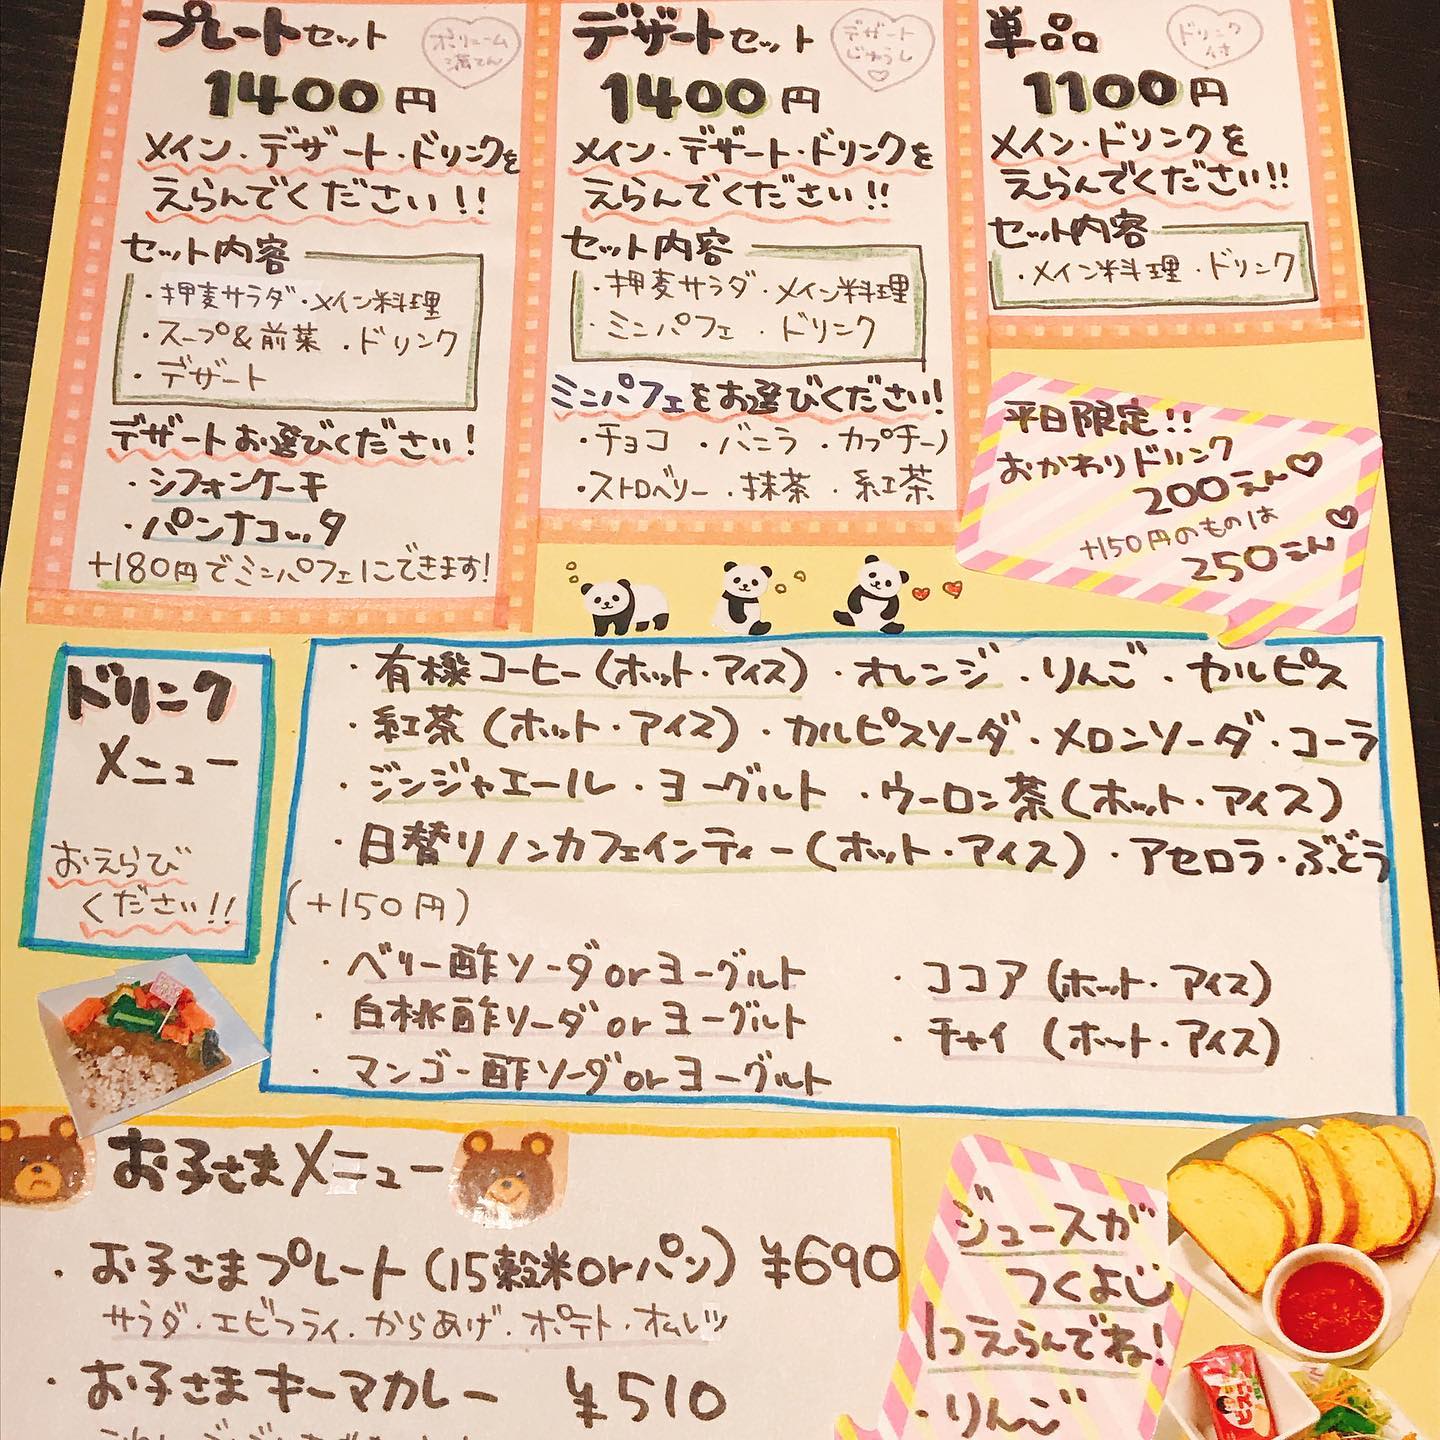 プレートセット
ボリューム
満てん
1400円
メイン・デザート・ドリンクを
えらんでください!!
セット内容
・押麦サラダ・メイン料理
・スープ&前菜・ドリンク
・デザート
デザートお選びください!
・シフォンケーキ
・パンナコッタ
+180円でミニパフェにできます!
デザートセット
デザート
じゅうし♡
1400円
メイン・デザート・ドリンクを
えらんでください!!
セット内容
・押麦サラダ・メイン料理
・ミニパフェ・ドリンク
ミニパフェをお選びください!
・チョコ・バニラ・カプチーノ
・ストロベリー・抹茶・紅茶
単品
ドリンク
付
1100円
メイン・ドリンクを
えらんでください!!
セット内容
・メイン料理・ドリンク
平日限定!!
おかわりドリンク
200えん♡
+150円のものは
250えん♡
ドリンク
メニュー
おえらび
ください!!
・有機コーヒー(ホット・アイス)・オレンジ・りんご・カルピス
・紅茶(ホット・アイス)・カルピスソーダ・メロンソーダ・コーラ
・ジンジャエール・ヨーグルト・ウーロン茶(ホット・アイス)
・日替りノンカフェインティー(ホット・アイス)・アセロラ・ぶどう
(+150円)
・ベリー酢ソーダorヨーグルト
・白桃酢ソーダorヨーグルト
・マンゴー酢ソーダorヨーグルト
・ココア(ホット・アイス)
・チャイ(ホット・アイス)
お子さまメニュー
・お子さまプレート(15穀米orパン)¥690
サラダ・エビフライ・からあげ・ポテト・オムレツ
・お子さまキーマカレー ¥510
ジュースが
つくよ
1つえらんでね!
・りんご